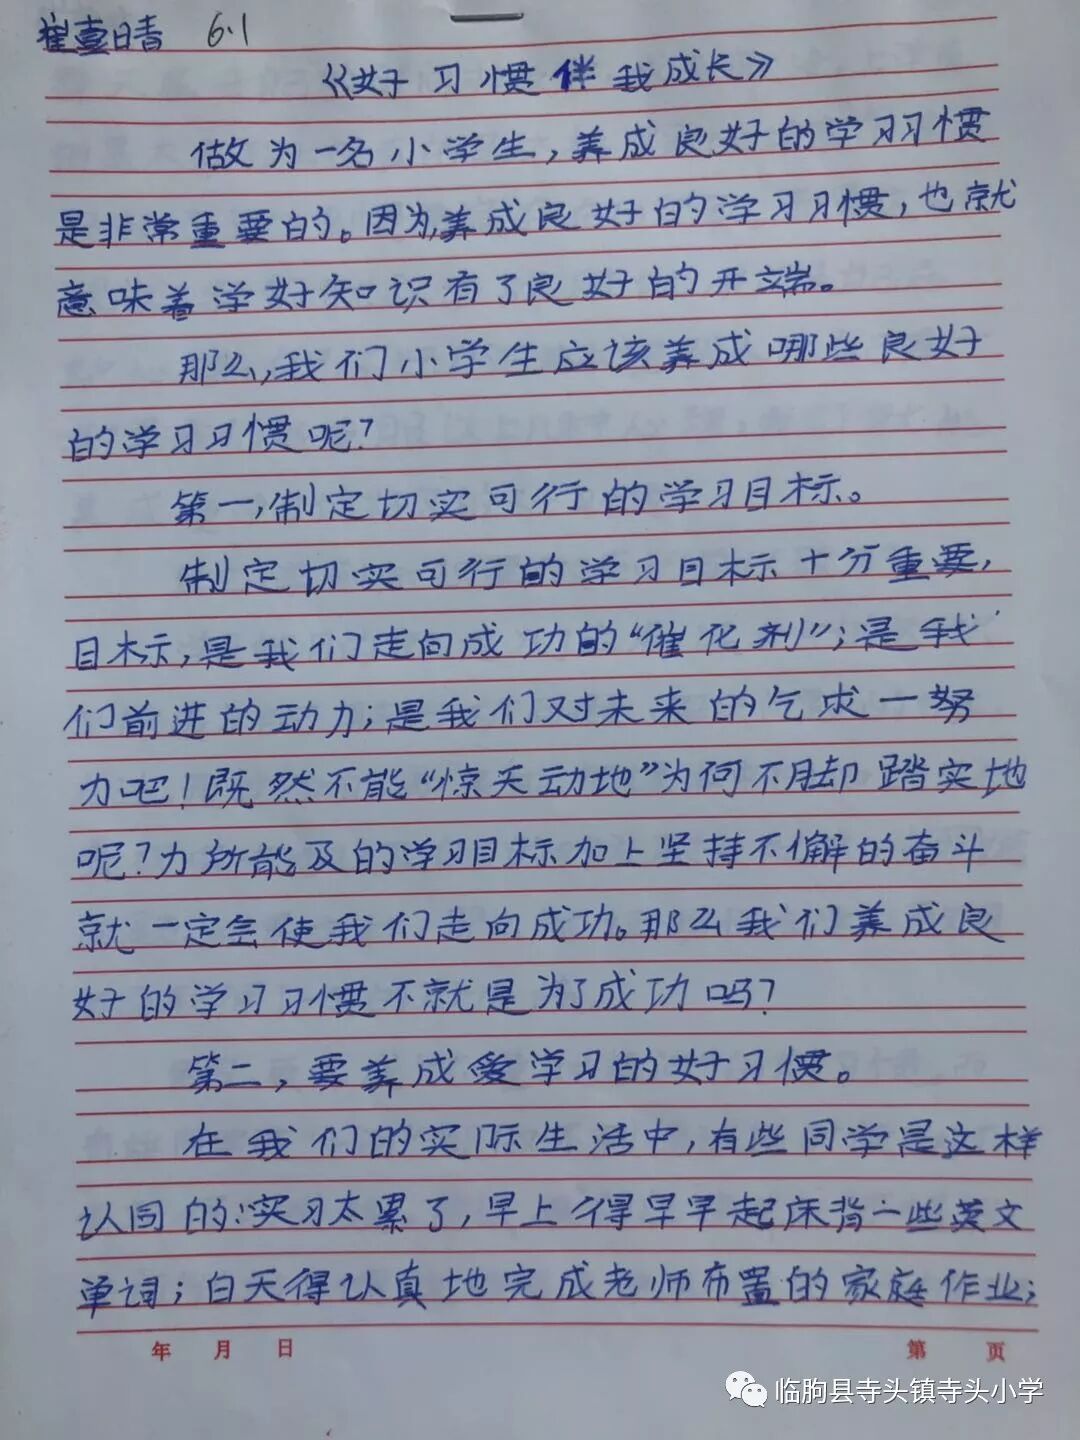 崔壹晴 6.1
《好习惯伴我成长》
做为一名小学生，养成良好的学习习惯
是非常重要的。因为，养成良好的学习习惯，也就
意味着学好知识有了良好的开端。
那么，我们小学生应该养成哪些良好
的学习习惯呢？
第一，制定切实可行的学习目标。
制定切实可行的学习目标十分重要，
目标，是我们走向成功的“催化剂”；是我
们前进的动力；是我们对未来的乞求一努
力吧！既然不能“惊天动地”为何不脚踏实地
呢？力所能及的学习目标加上坚持不懈的奋斗
就一定会使我们走向成功。那么我们养成良
好的学习习惯不就是为了成功吗？
第二，要养成爱学习的好习惯。
在我们的实际生活中，有些同学是这样
认同的：实习太累了，早上得早早起床背一些英文
单词；白天得认真地完成老师布置的家庭作业；
年 月 日 第 页
临朐县寺头镇寺头小学